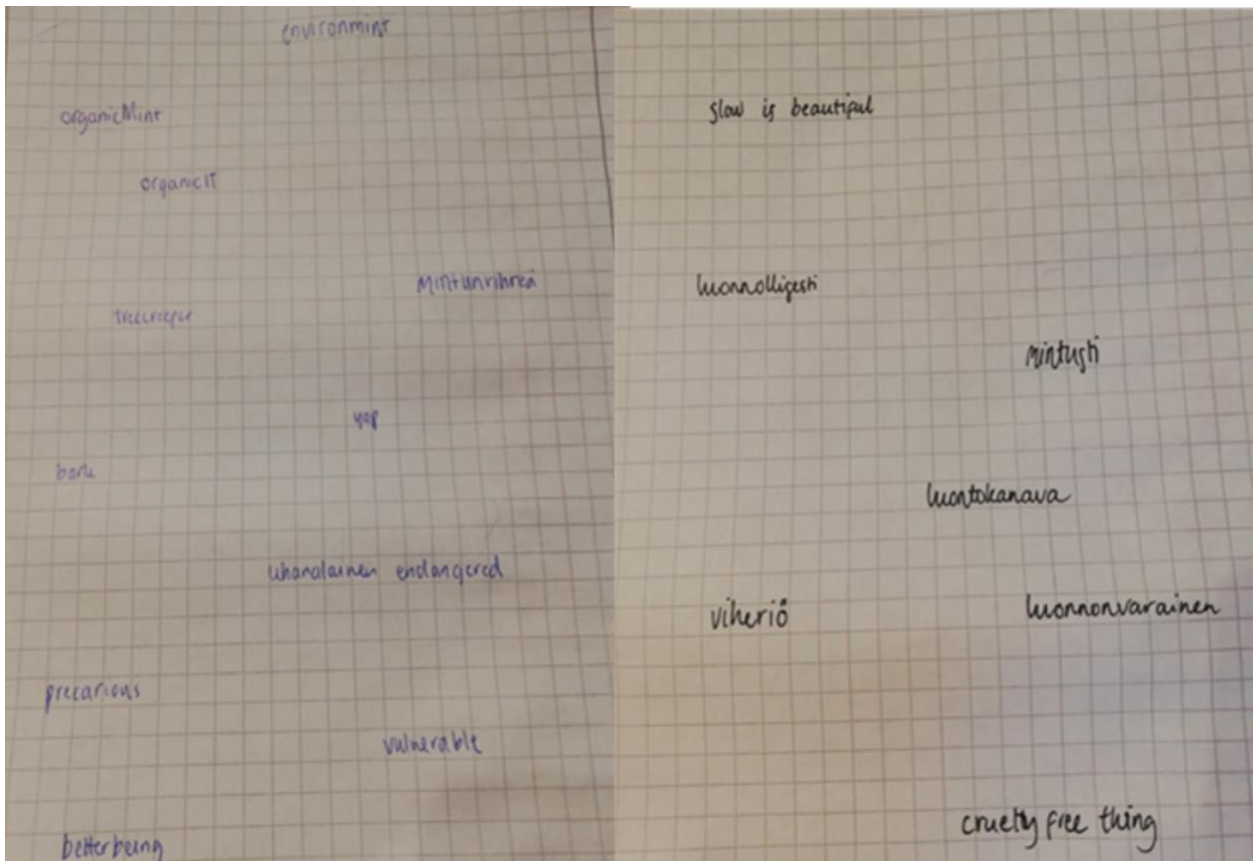 environmint
organicMint
organicIT
Mintunvihreä
treecreeper
yap
bark
uhanalainen endangered
precarious
vulnerable
better being
slow is beautiful
luonnollisesti
mintusti
luontokanava
viheriö
luonnonvarainen
cruelty free thing